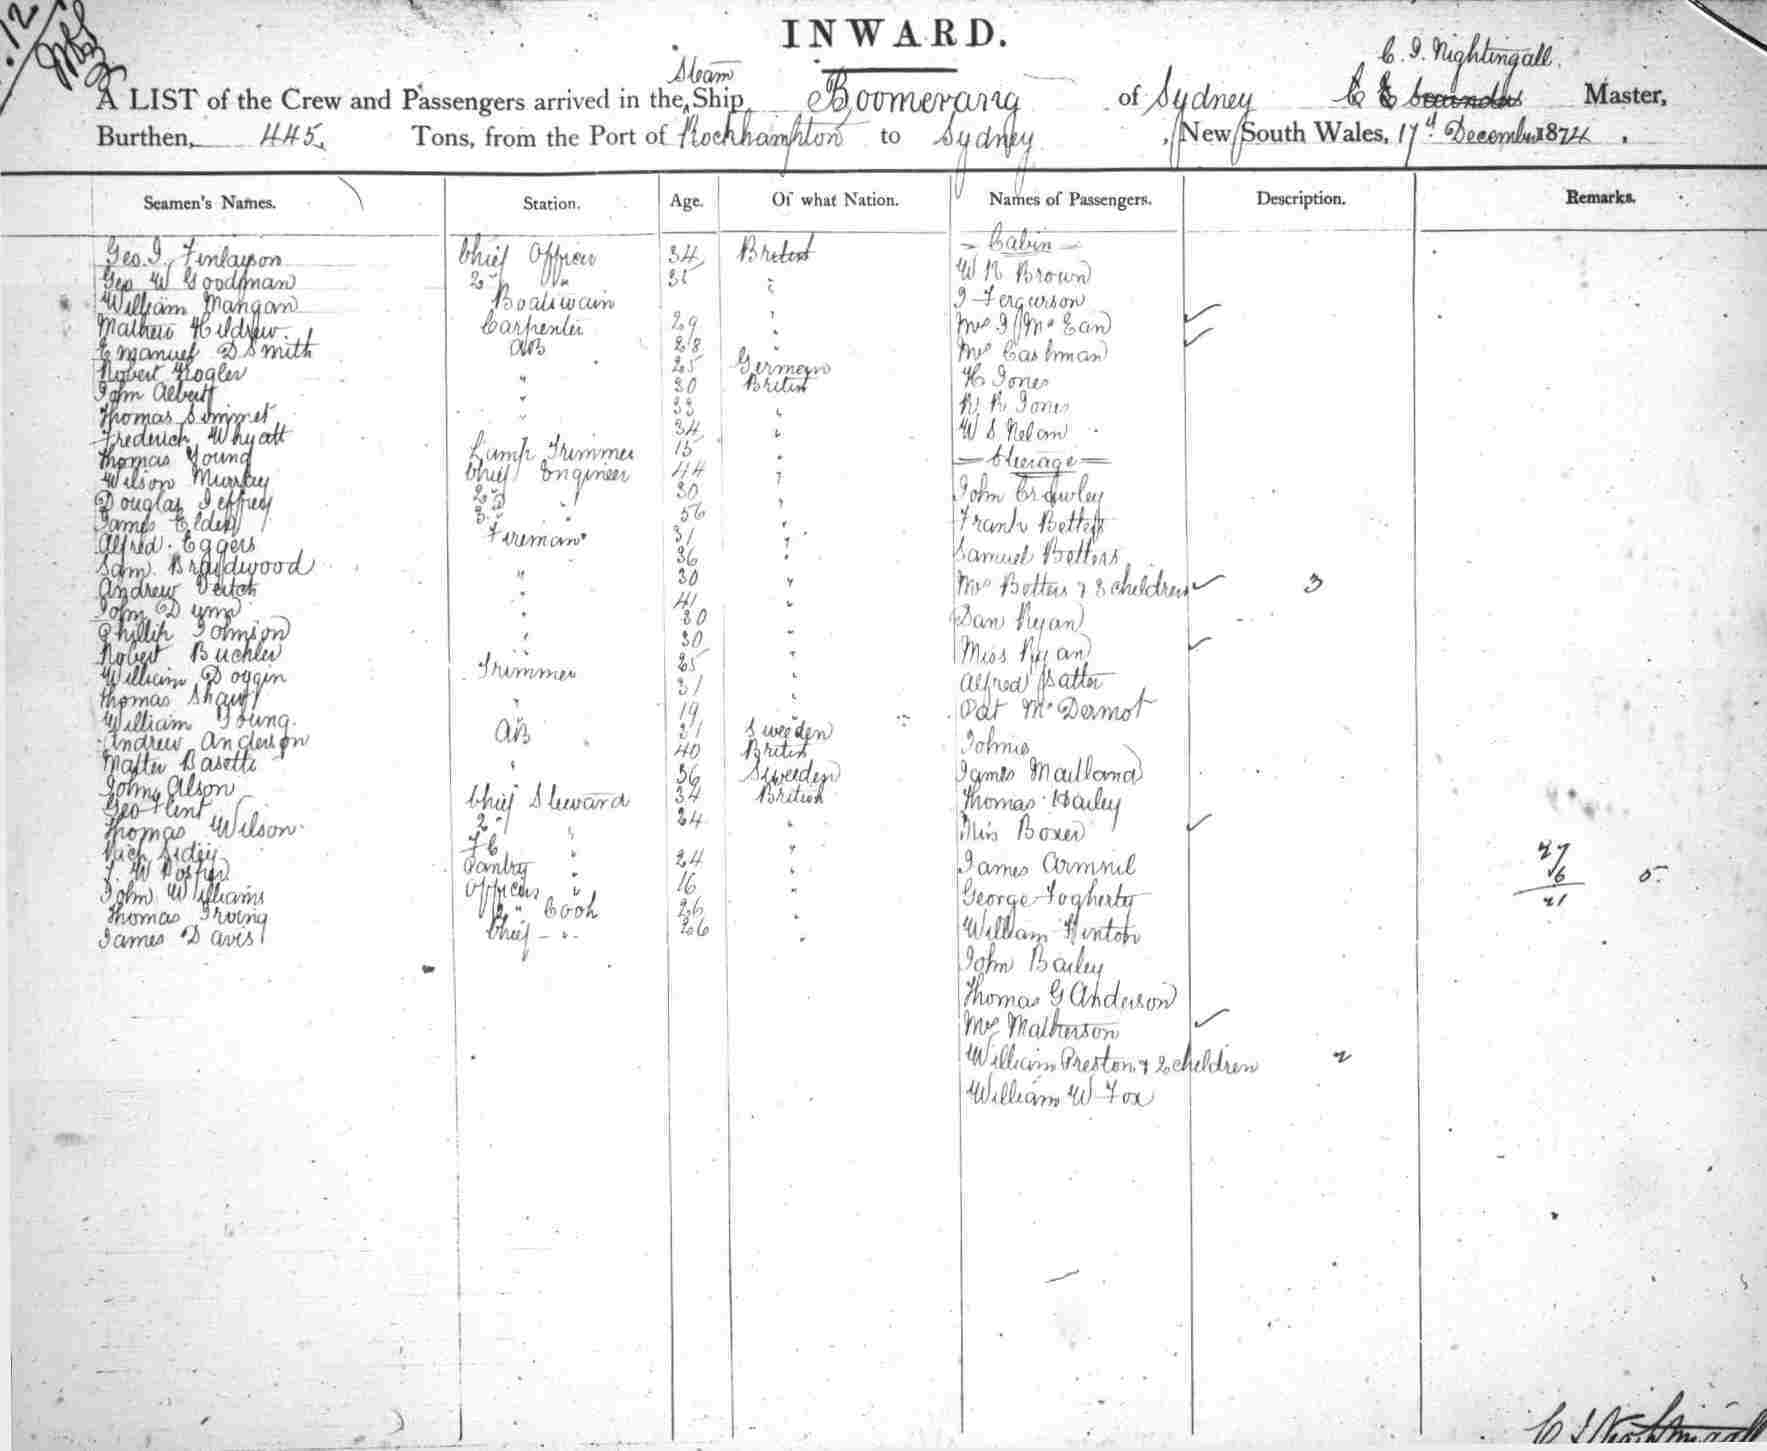 12
INWARD.
C. J. Nightingall.
Steam
A LIST of the Crew and Passengers arrived in the Ship Boomerang of Sydney C E Master,
Burthen, 445 Tons, from the Port of Rockhampton to Sydney New South Wales, 17th December 1874.
Seamen's Names. Station. Age. Of what Nation. Names of Passengers. Description. Remarks.
Geo. J. Finlayson Chief Officer 34 British
Geo W Goodman 2nd " 35 "
William Mangan Boatswain "
Mathew Hildrew Carpenter 29 "
Emanuel D Smith AB 28 "
Robert Kogler 25 German
John Albert " 30 British
Thomas Simmet " 33 "
Frederick Whyatt " 34 "
Thomas Young Lamp Trimmer 15 "
Wilson Murray Chief Engineer 44 "
Douglas Jeffrey 2nd " 30 "
James Elder 3rd " 56 "
Alfred Eggers Fireman 31 "
Sam. Braydwood 36 "
Andrew Veitch " 30 "
John Dunn " 41 "
Phillip Johnson " 30 "
Robert Buchler " 30 "
William Doggin Trimmer 25 "
Thomas Shaw 31 "
William Young " 19 "
Andrew Anderson AB 31 Sweeden
Walter Basette " 40 British
John Alson 36 Sweeden
Geo Flint Chief Steward 34 British
Thomas Wilson 2nd " 24 "
Sidey FC " "
J. W Foster Pantry " 24 "
John Williams Officers " 16 "
Thomas Irving 2nd Cook 26 "
James Davis Chief " 26 "
Cabin
W R Brown
J Fergurson
Mrs J McEan
Mrs Cashman
H Jones
R R Jones
W S Nelan
Steerage
John Crowley
Frank Betters
Samuel Betters
Mrs Betters & 3 children 3
Dan Ryan
Miss Ryan
Alfred
Pat McDermot
Johnie
James Mailland
Thomas Hailey
Miss Boxer
James Armnil
George Fogherty
William Hinton
John Bailey
Thomas G Anderson
Mrs Matherson
William Preston & 2 children 2
William W Fox
27
6 5
21
C J Nightingall